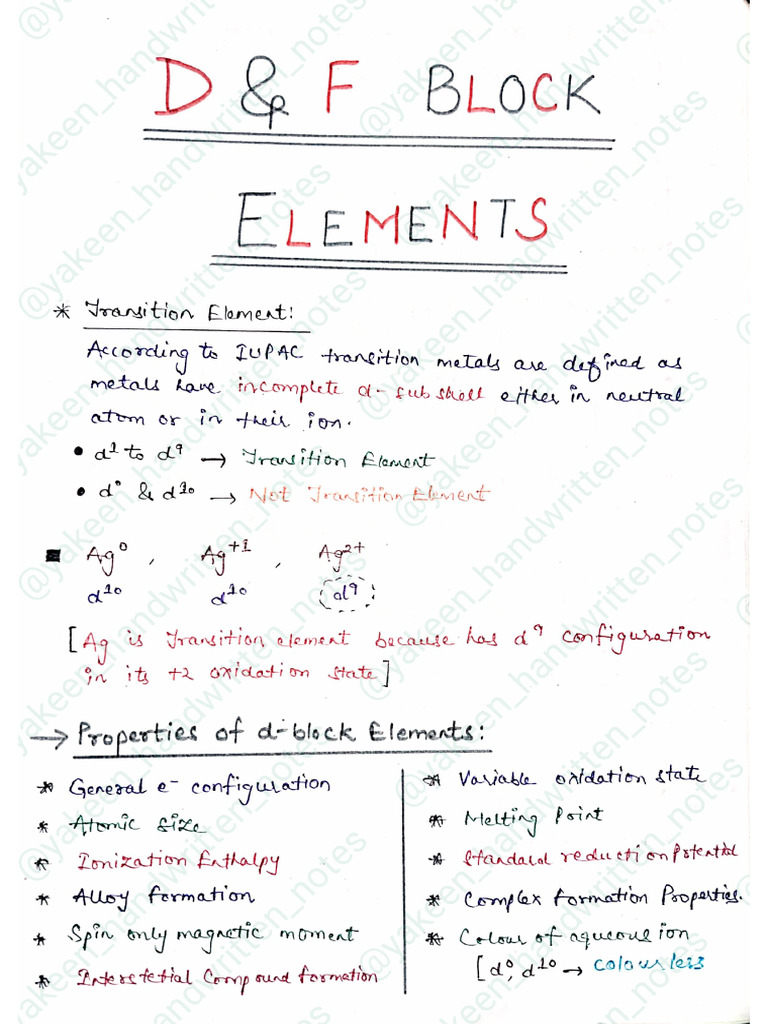 D & F BLOCK
ELEMENTS
* Transition Element:
According to IUPAC transition metals are defined as
metals have incomplete d-subshell either in neutral
atom or in their ion.
• d¹ to d⁹ → Transition Element
• d⁰ & d¹⁰ → Not Transition Element
■ Ag⁰ , Ag⁺¹ , Ag²⁺
d¹⁰ d¹⁰ d⁹
[Ag is Transition element because has d⁹ configuration
in its +2 oxidation state]
→ Properties of d-block Elements:
* General e⁻ configuration
* Atomic Size
* Ionization Enthalpy
* Alloy formation
* Spin only magnetic moment
* Interstetial Compound formation
* Variable oxidation state
* Melting Point
* Standard reduction Potential
* Complex formation Properties.
* Colour of aqueous ion
[d⁰, d¹⁰ → colourless
@yakeen_handwritten_notes